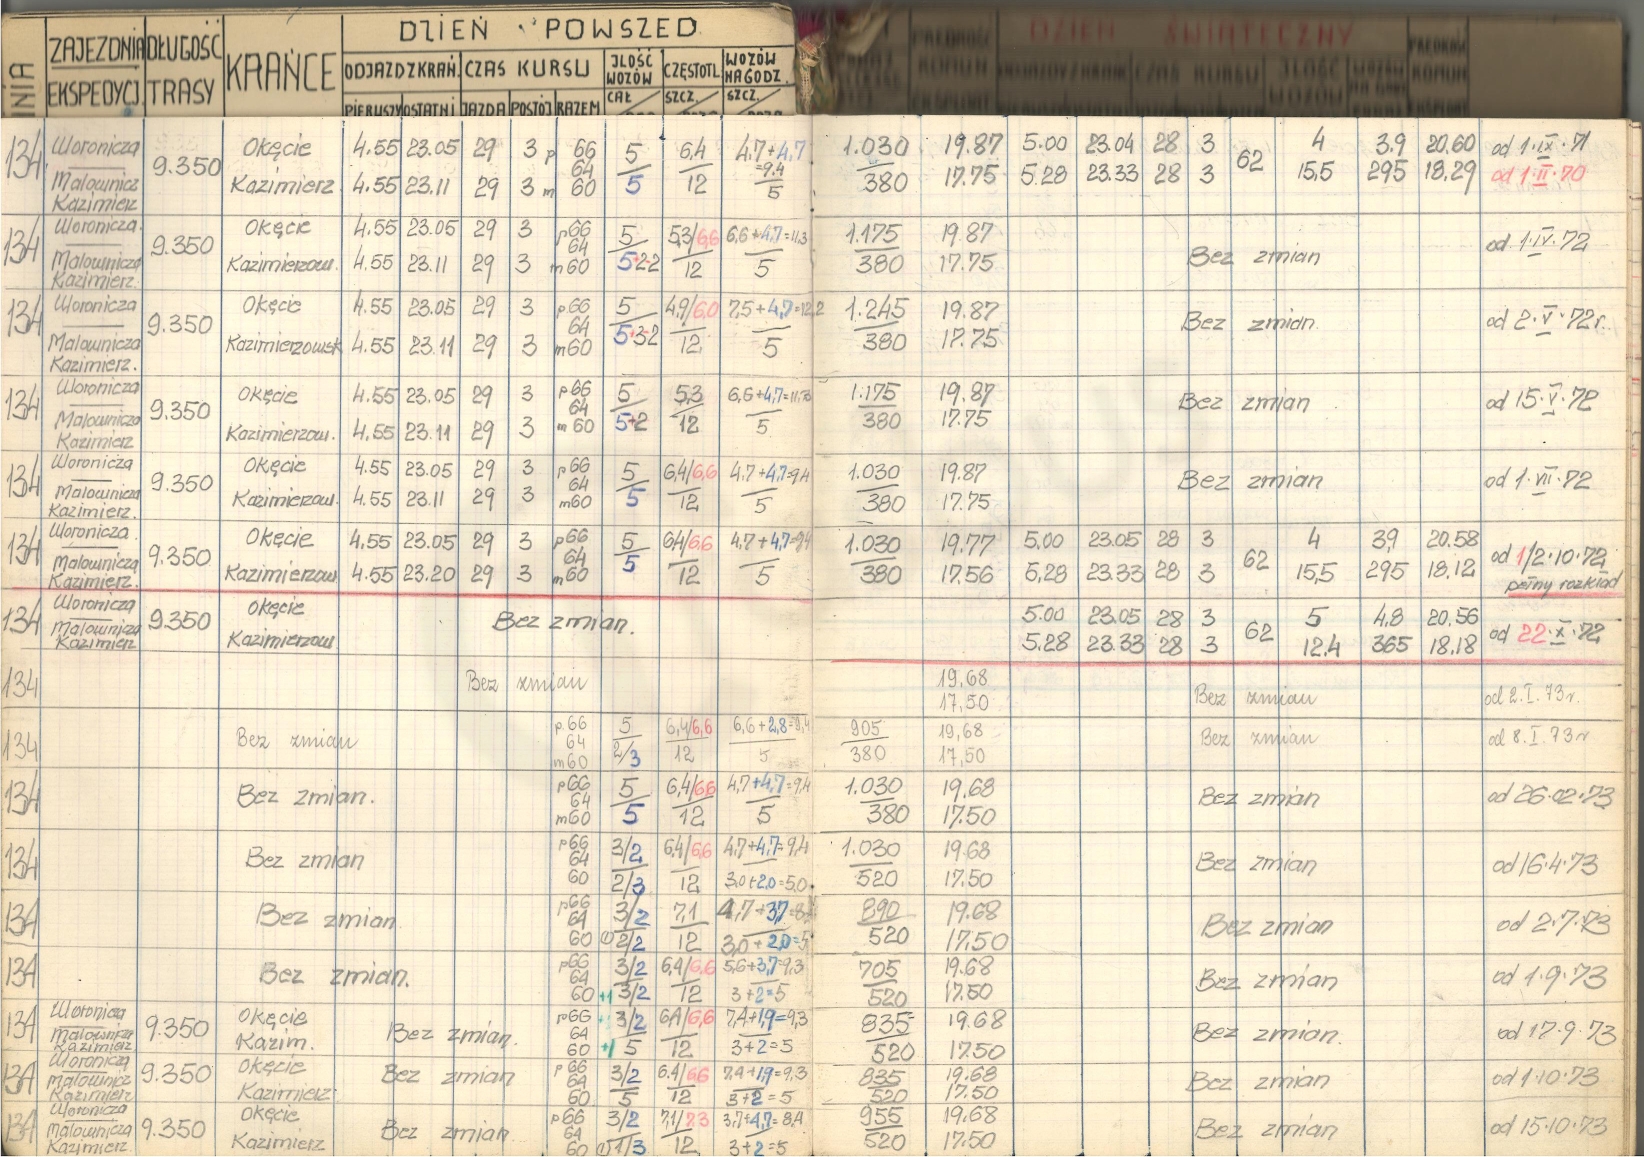 LINIA ZAJEZDNIA EKSPEDYCJ. DŁUGOŚĆ TRASY KRAŃCE DZIEŃ POWSZED
ODJAZD Z KRAŃ. CZAS KURSU ILOŚĆ WOZÓW CZĘSTOTL. WOZÓW NA GODZ.
PIERWSZY OSTATNI JAZDA POSTÓJ RAZEM CAŁ SZCZ. SZCZ.
DZIEŃ ŚWIĄTECZNY
134 Woronicza 9.350 Okęcie 4.55 23.05 29 3 p 66 5 6,4 4,7+4,7 1.030 19.87 5.00 23.04 28 3 62 4 3,9 20,60 od 1·IX·71
64 =9.4
Malownicz Kazimierz 4.55 23.11 29 3 m 60 5 12 5 380 17.75 5.28 23.33 28 3 15,5 295 18,29 od 1·II·70
Kazimierz
134 Woronicza. 9.350 Okęcie 4.55 23.05 29 3 p66 5 5,3/6,6 6,6+4,7=11,3 1.175 19.87 Bez zmian od 1·IV·72
64
Malownicza Kazimierzow. 4.55 23.11 29 3 m60 5+2-2 12 5 380 17.75
Kazimierz.
134 Woronicza 9.350 Okęcie 4.55 23.05 29 3 p66 5 4,9/6,0 7,5+4,7=12,2 1.245 19.87 Bez zmian. od 2·V·72r.
64
Malownicza Kazimierzowsk 4.55 23.11 29 3 m60 5+3-2 12 5 380 17.75
Kazimierz.
134 Woronicza 9.350 Okęcie 4.55 23.05 29 3 p66 5 5,3 6,6+4,7=11,3 1.175 19,87 Bez zmian od 15·V·72
64
Malownicza Kazimierzow. 4.55 23.11 29 3 m 60 5+2 12 5 380 17.75
Kazimierz
134 Woronicza 9.350 Okęcie 4.55 23.05 29 3 p66 5 6,4/6,6 4,7+4,7=9,4 1.030 19.87 Bez zmian od 1·VII·72
64
Malownicza Kazimierzow. 4.55 23.11 29 3 m60 5 12 5 380 17.75
Kazimierz.
134 Woronicza. 9.350 Okęcie 4,55 23.05 29 3 p66 5 6,4/6,6 4,7+4,7=9,4 1.030 19,77 5,00 23.05 28 3 62 4 3,9 20.58 od 1/2·10·72
64
Malownicza Kazimierzow 4.55 23.20 29 3 m60 5 12 5 380 17.56 5,28 23.33 28 3 15,5 295 18,12 pełny rozkład
Kazimierz.
134 Woronicza 9.350 Okęcie Bez zmian. 5.00 23.05 28 3 62 5 4,8 20,56 od 22·X·72
Malownicza Kazimierzow 5.28 23.33 28 3 12,4 365 18,18
Kazimierz
134 Bez zmian 19,68 Bez zmian od 2.I.73r.
17,50
134 Bez zmian p.66 5 6,4/6,6 6,6+2,8=9,4 905 19,68 Bez zmian od 8.I.73r
64
m60 2/3 12 5 380 17,50
134 Bez zmian. p66 5 6,4/6,6 4,7+4,7=9,4 1.030 19,68 Bez zmian od 26·02·73
64
m60 5 12 5 380 17.50
134 Bez zmian p66 3/2 6,4/6,6 4,7+4,7=9,4 1.030 19.68 Bez zmian od 16·4·73
64
60 2/3 12 3,0+2,0=5,0 520 17.50
134 Bez zmian p66 3/2 7,1 4,7+3,7=8,4 890 19.68 Bez zmian od 2·7·73
64
60 2/2 12 3,0+2,0=5 520 17.50
134 Bez zmian. p66 3/2 6,4/6,6 5,6+3,7=9,3 705 19.68 Bez zmian od 1·9·73
64
60 +1 3/2 12 3+2=5 520 17.50
134 Woronicza 9.350 Okęcie Bez zmian. p66 3/2 6,4/6,6 7,4+1,9=9,3 835 19.68 Bez zmian. od 17·9·73
Malownicza Kazim. 64
Kazimierz 60 +1 5 12 3+2=5 520 17.50
134 Woronicza 9.350 Okęcie Bez zmian p66 3/2 6.4/6,6 7,4+1,9=9,3 835 19.68 Bez zmian od 1·10·73
Malownicz 64
Kazimierz Kazimierz. 60 5 12 3+2=5 520 17.50
134 Woronicza 9.350 Okęcie Bez zmian p66 3/2 7,1/7,3 3,7+4,7=8,4 955 19.68 Bez zmian. od 15·10·73
Malownicza 64
Kazimierz. Kazimierz 60 1/3 12 3+2=5 520 17.50